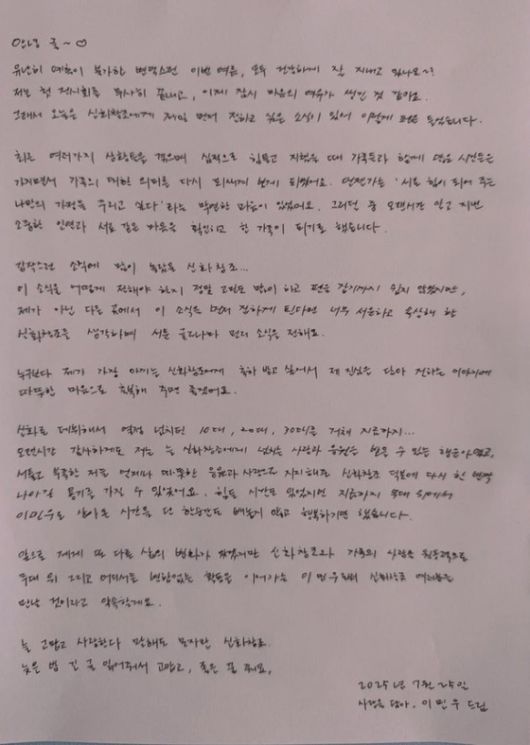 안녕 글~♡
유난히 예측이 불가한 변덕스런 이번 여름, 모두 건강하게 잘 지내고 있나요~?
저는 첫 전시회를 무사히 끝내고, 이제 잠시 마음의 여유가 생긴 것 같아요.
그래서 오늘은 신화창조에게 제일 먼저 전하고 싶은 소식이 있어 이렇게 펜을 들었습니다.
최근 여러가지 상황들을 겪으며 심적으로 힘들고 지쳤을 때 가족들과 함께 있는 시간들은
가지면서 가족의 대한 의미를 다시 되새기게 되었어요. 언젠가는 '서로 힘이 되어 주는
나만의 가정을 꾸리고 싶다'라는 막연한 마음이 있었어요. 그러던 중 오랜시간 알고 지낸
소중한 인연과 서로 같은 마음을 확인하고 한 가족이 되기로 했습니다.
갑작스런 소식에 많이 놀랐을 신화창조...
이 소식을 어떻게 전해야 할지 정말 고민도 많이 하고 펜을 잡기까지 쉽지 않았지만,
제가 아닌 다른 곳에서 이 소식을 먼저 접하게 된다면 너무 서운하고 속상해 할
신화창조를 생각하며 서툰 글로나마 먼저 소식을 전해요.
누구보다 제가 가장 아끼는 신화창조에게 축하 받고 싶어서 제 진심을 담아 전하는 이야기에
따뜻한 마음으로 축복해 주면 좋겠어요.
신화로 데뷔해서 열정 넘치던 10대, 20대, 30대를 거쳐 지금까지...
오랜시간 감사하게도 저는 늘 신화창조에게 넘치는 사랑과 응원을 받을 수 있는 행운아였고,
서툴고 부족한 저를 언제나 따뜻한 응원과 사랑으로 지지해준 신화창조 덕분에 다시 한 발짝
나아갈 용기를 가질 수 있었어요. 힘든 시간도 있었지만 지금까지 무대 위에서
이민우로 살아온 시간을 단 한순간도 빼놓지 않고 행복하기만 했습니다.
앞으로 제게 또 다른 삶의 변화가 찾겠지만 신화창조와 가족의 사랑을 원동력으로
무대 위 그리고 어디서든 변함없는 활동을 이어가는 이민우로 신화창조 여러분을
만날 것이라고 약속할게요.
늘 고맙고 사랑한다 말해도 모자란 신화창조.
늦은 밤 긴 글 읽어줘서 고맙고, 좋은 꿈 꿔요,
2025년 7월 25일
사랑을 담아, 이민우 드림